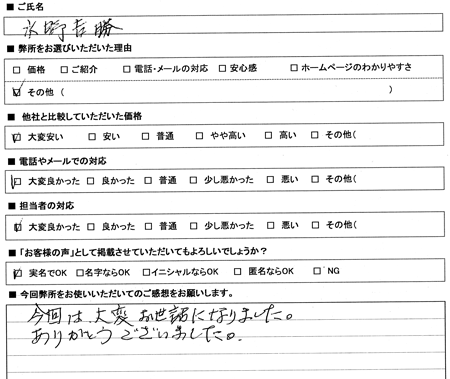 ■ ご氏名
水野吉勝
■ 弊所をお選びいただいた理由
□ 価格 □ ご紹介 □ 電話・メールの対応 □ 安心感 □ ホームページのわかりやすさ
☑ その他 ( )
■ 他社と比較していただいた価格
☑ 大変安い □ 安い □ 普通 □ やや高い □ 高い □ その他(
■ 電話やメールでの対応
☑ 大変良かった □ 良かった □ 普通 □ 少し悪かった □ 悪い □ その他(
■ 担当者の対応
☑ 大変良かった □ 良かった □ 普通 □ 少し悪かった □ 悪い □ その他(
■ 「お客様の声」として掲載させていただいてもよろしいでしょうか?
☑ 実名でOK □ 名字ならOK □ イニシャルならOK □ 匿名ならOK □ NG
■ 今回弊所をお使いいただいてのご感想をお願いします。
今回は、大変お世話になりました。
ありがとうございました。